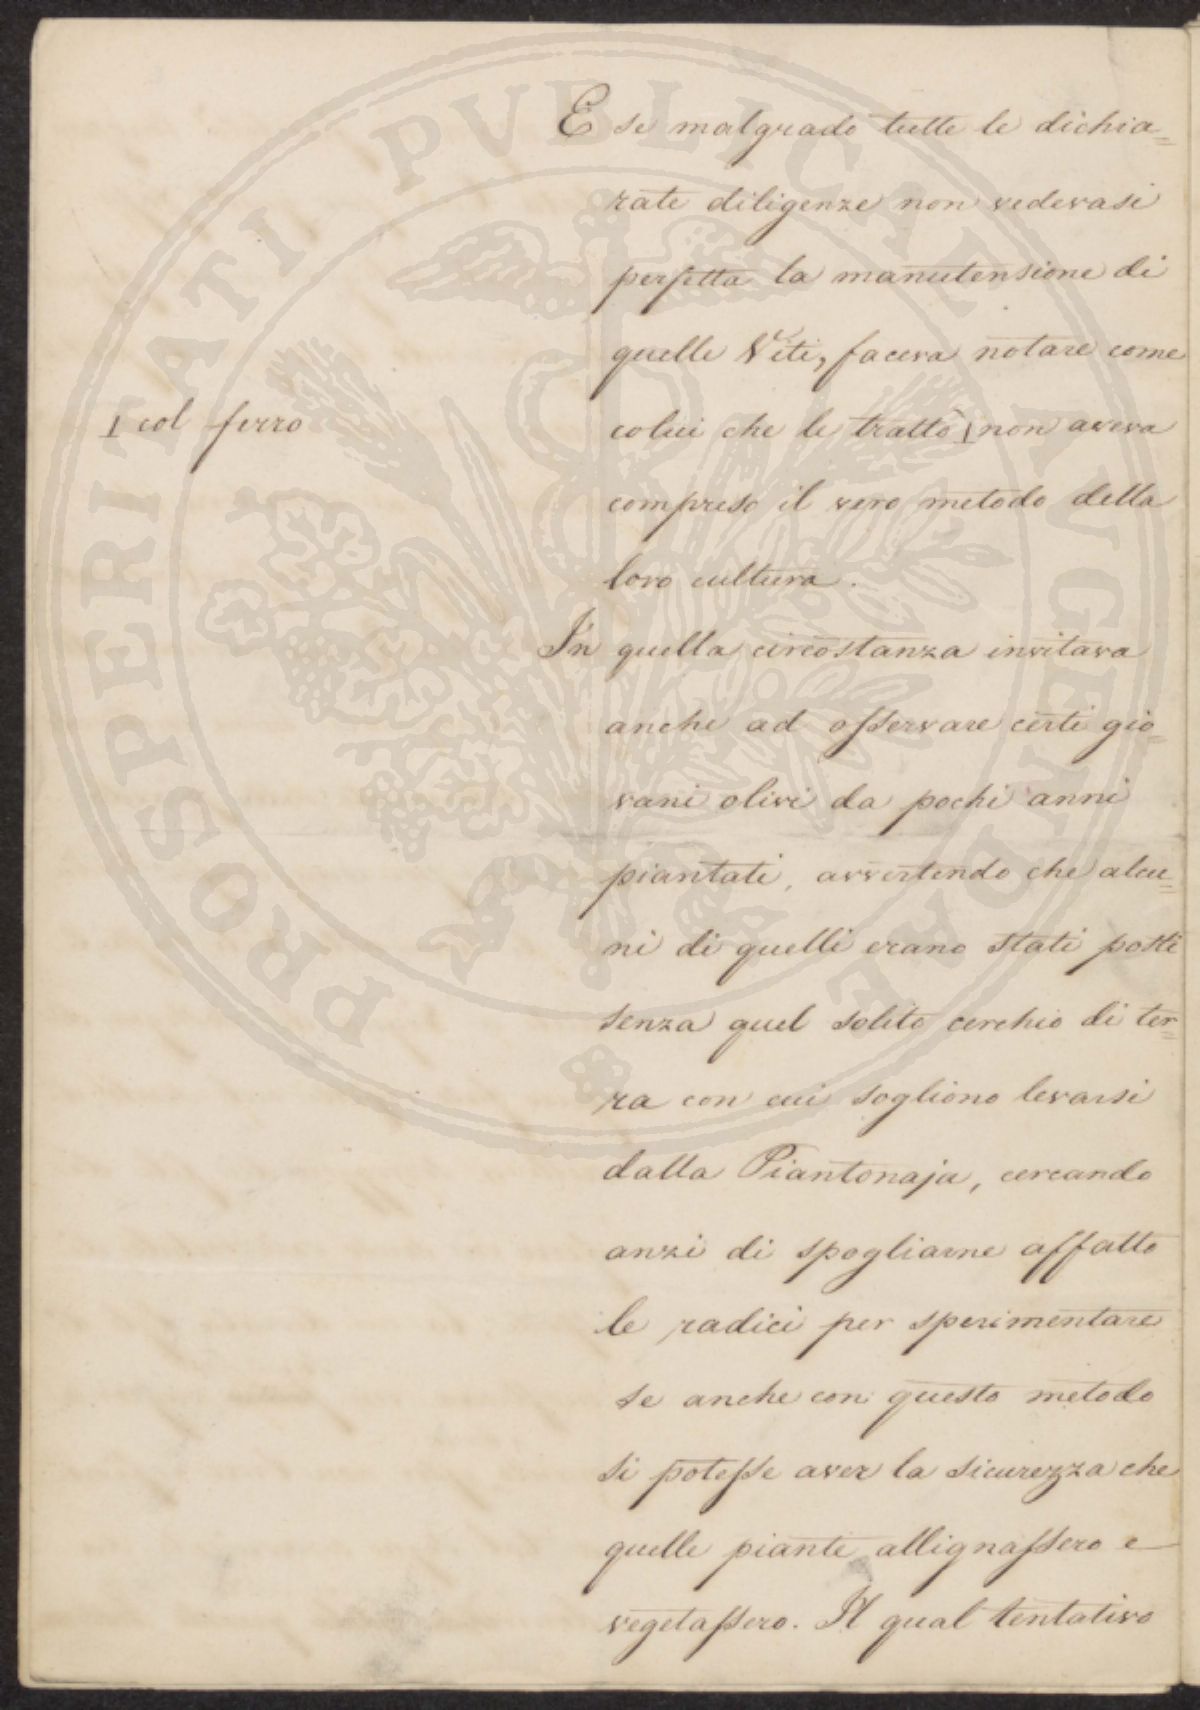 PROSPERITATI PVBLICAE AVGENDAE
E se malgrado tutte le dichia=
rate diligenze non vedevasi
perfetta la manutensione di
quelle Viti, faceva notare come
colui che le trattò I non aveva
I col ferro
compreso il vero metodo della
loro cultura.
In quella circostanza invitava
anche ad osservare certi gio=
vani olivi da pochi anni
piantati, avvertendo che alcu=
ni di quelli erano stati posti
senza quel solito cerchio di ter=
ra con cui sogliono levarsi
dalla Piantonaja, cercando
anzi di spogliarne affatto
le radici per sperimentare
se anche con questo metodo
si potesse aver la sicurezza che
quelle piante allignassero e
vegetassero. Il qual tentativo